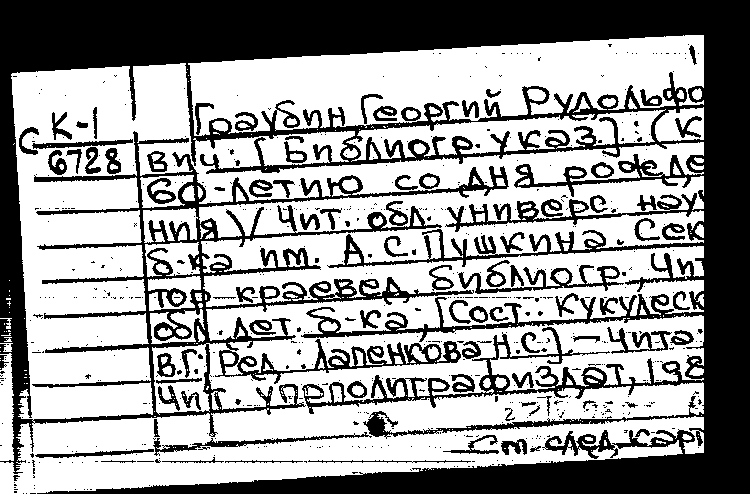 Граубин Георгий Рудольфо
С К-1
6728
вич: [Библиогр. указ.]: (К
60-летию со дня рожде
ния)/ Чит. обл. универс. нау
б-ка им. А.С.Пушкина. Сек
тор краевед. библиогр., Чит
обл. дет. б-ка; [Сост.: Кукулеск
В.Г.; Ред.: Лапенкова Н.С.]. — Чита:
Чит. упрполиграфиздат, 198
См. след. карт